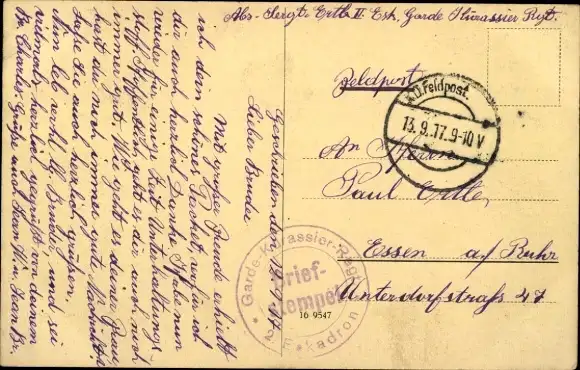 Abs. Sergt. Ertle II. Esk. Garde Kürassier Rgt.
Feldpost
K.D. Feldpost.
13.9.17.9-10 V
An Herrn
Paul Ertle,
Essen a/Ruhr
Unterdorfstraße 47
Garde-Kürassier-Regt.
Brief-
stempel
Eskadron
16 9547
Geschrieben den
Lieber Bruder
Mit großer Freude erhielt
ich dein schönes Packet, will ich
dir auch herzlich Danke. Habe nun
wieder für einige Zeit Unterhaltungs-
stoff. Hoffentlich geht es dir auch noch
immer gut. Wie geht es deiner Frau,
hast du noch immer gute Nachricht.
Lasse Sie auch herzlich grüßen.
Nun leb wohl lb. Bruder, und sei
vielmals herzlich gegrüßt von deinem
Br. Charles. Gruß und